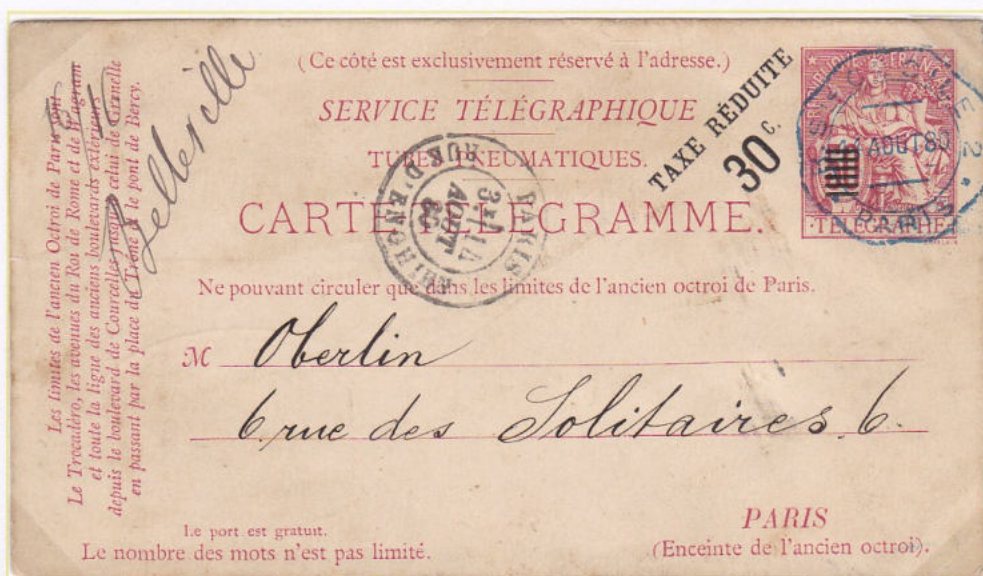 (Ce côté est exclusivement réservé à l'adresse.)
SERVICE TÉLÉGRAPHIQUE
TUBES PNEUMATIQUES.
TAXE RÉDUITE
30 c.
CARTE TÉLÉGRAMME.
Ne pouvant circuler que dans les limites de l'ancien octroi de Paris.
M Oberlin
6 rue des Solitaires 6.
PARIS
(Enceinte de l'ancien octroi).
Le port est gratuit.
Le nombre des mots n'est pas limité.
Les limites de l'ancien Octroi de Paris sont
Le Trocadéro, les avenues du Roi de Rome et de Wagram
et toute la ligne des anciens boulevards extérieurs
depuis le boulevard de Courcelles jusqu'à celui de Grenelle
en passant par la place du Trône et le pont de Bercy.
Belleville
PARIS
14
AOUT
RUE D'ENGHIEN
AOUT 80
PARIS
TÉLÉGRAPHE